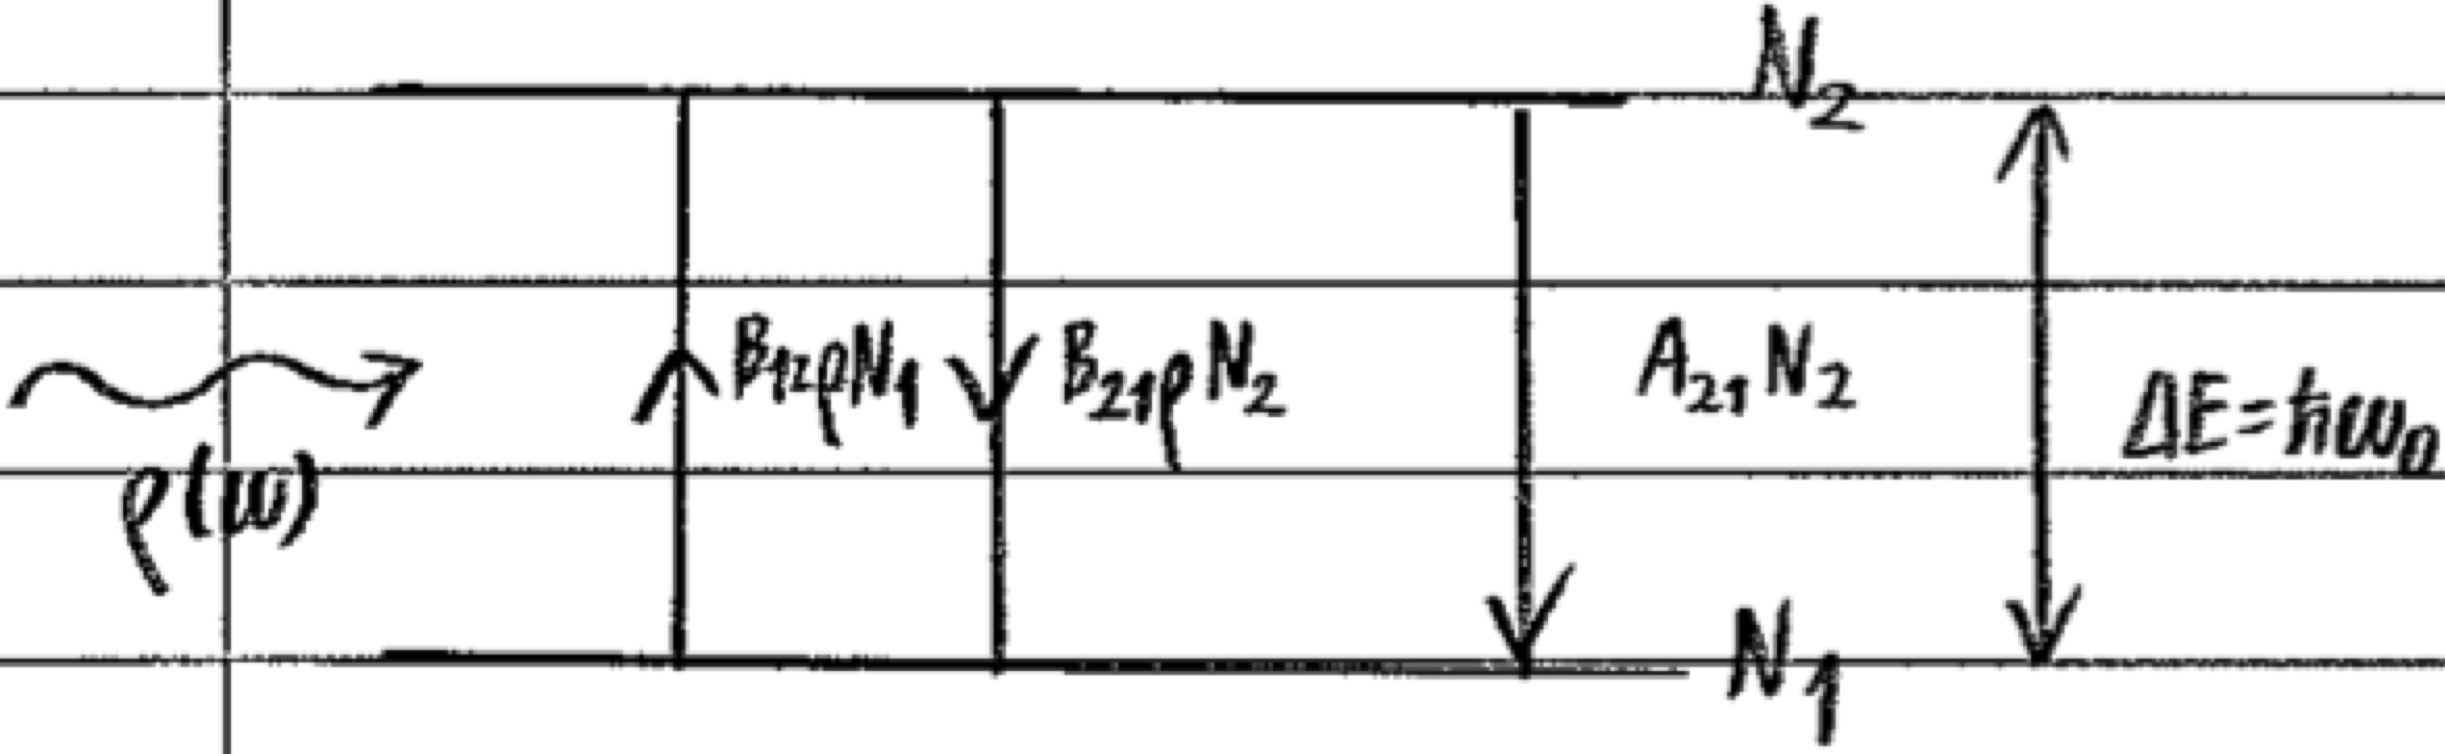 N₂
B₁₂ρN₁ B₂₁ρN₂ A₂₁N₂ ΔE=ħω₀
ρ(ω)
N₁